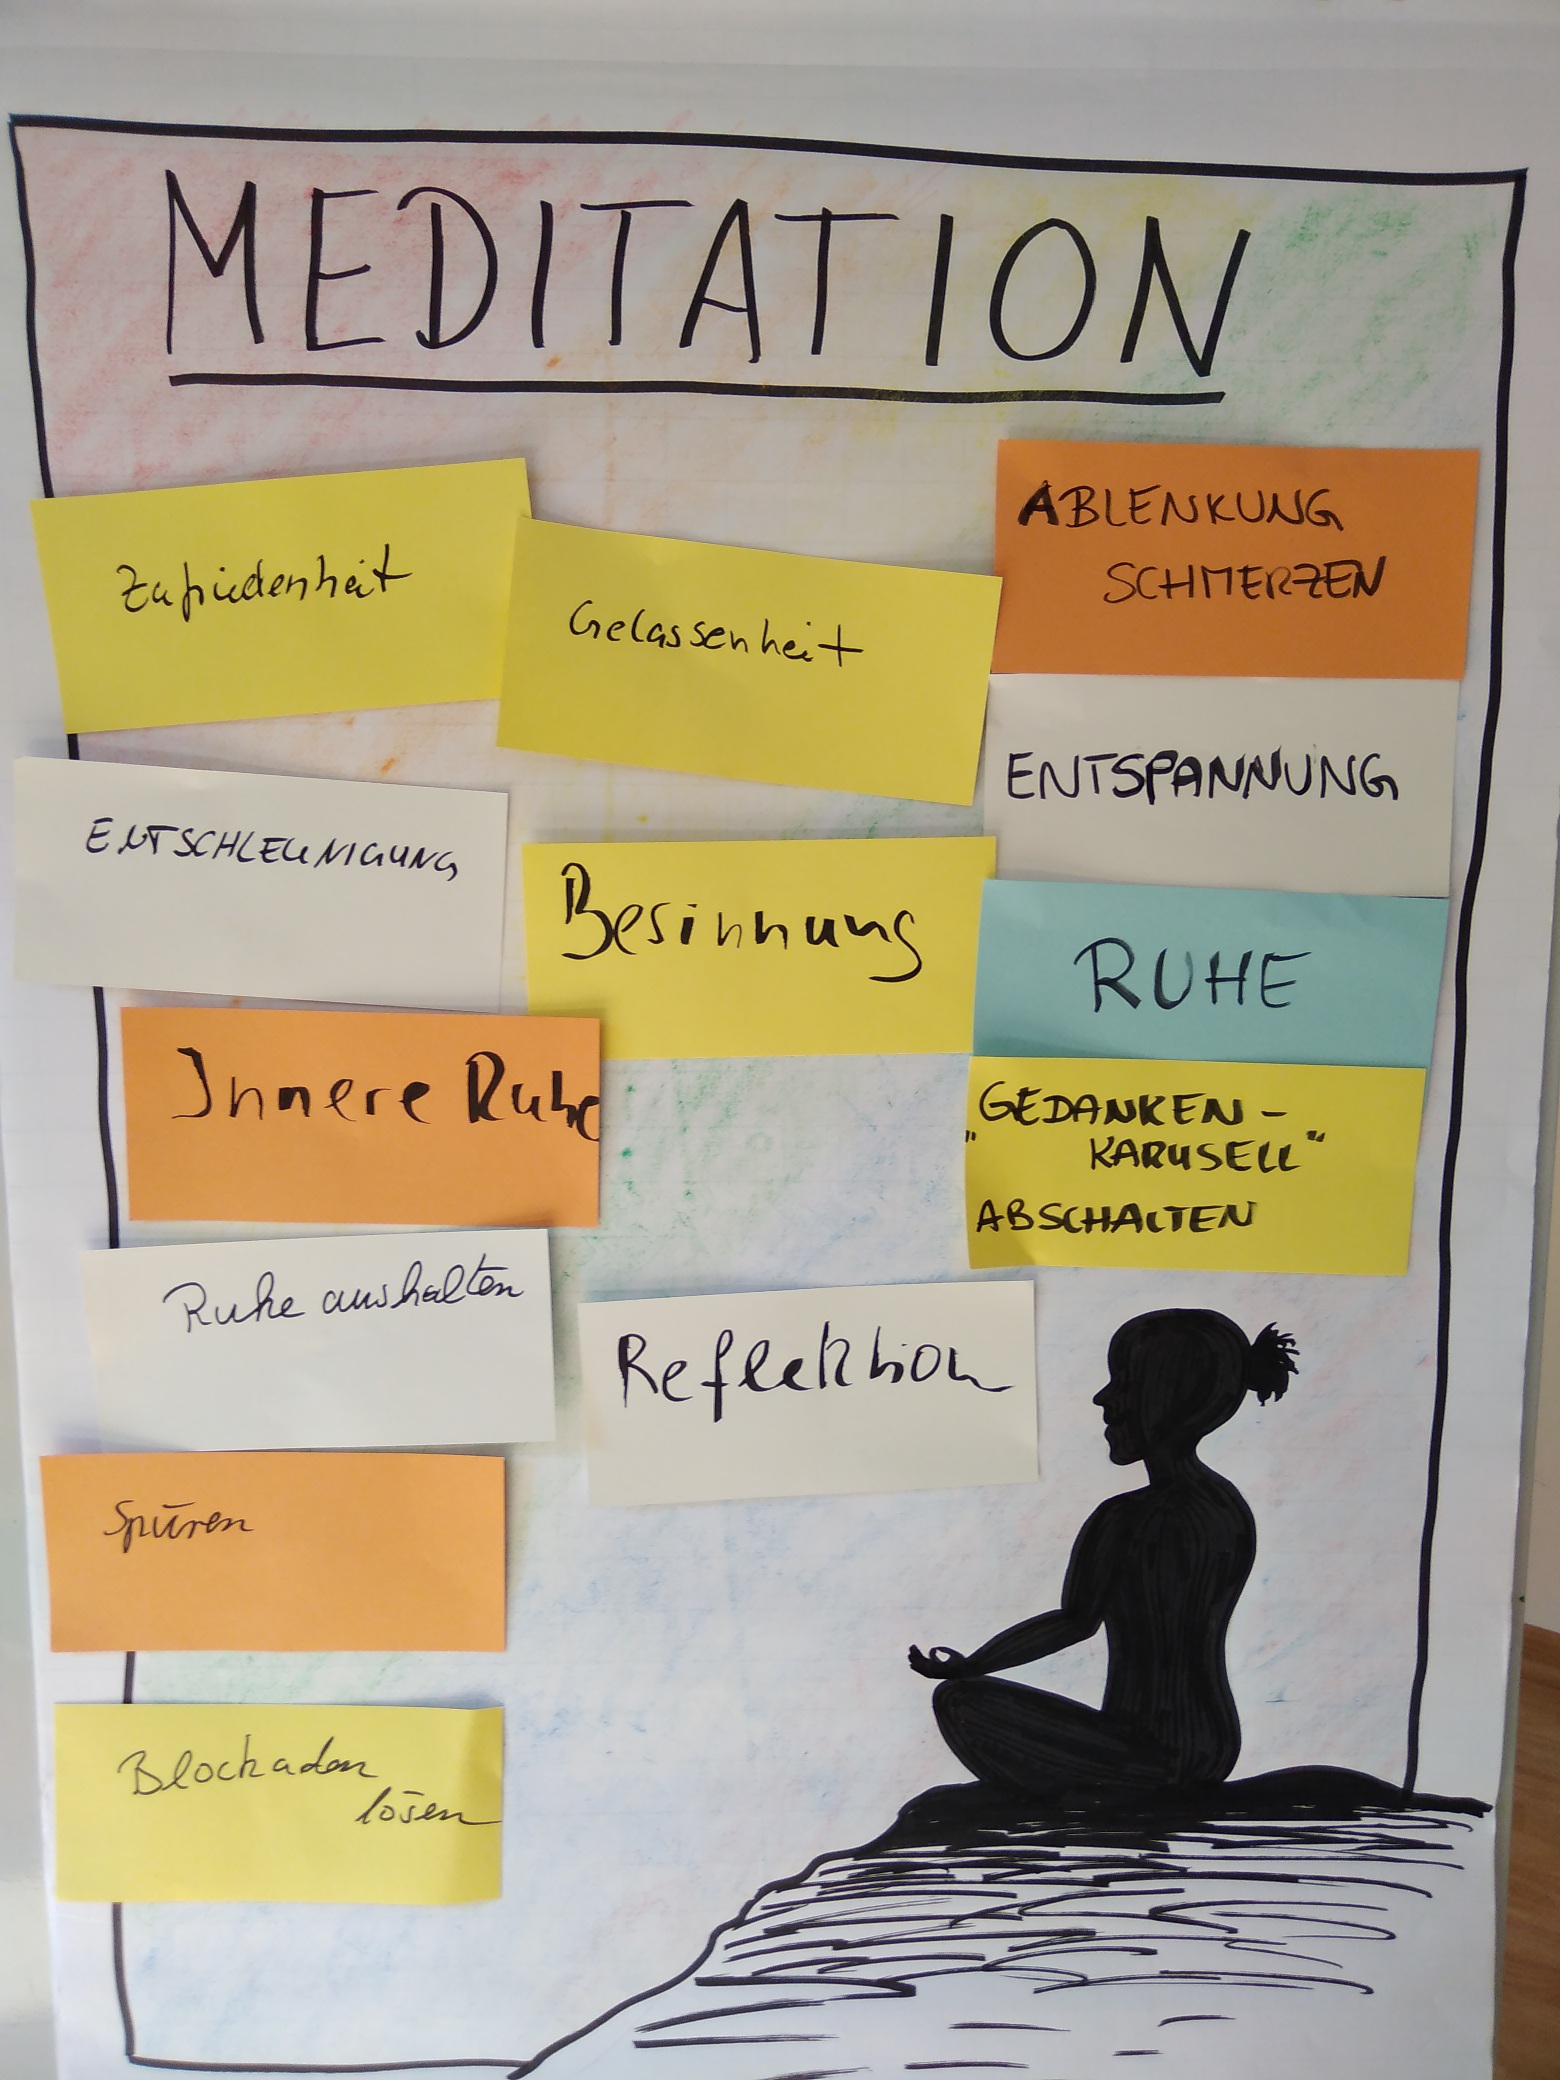 MEDITATION
Zufriedenheit
Gelassenheit
ABLENKUNG
SCHMERZEN
ENTSPANNUNG
ENTSCHLEUNIGUNG
Besinnung
RUHE
Innere Ruhe
„GEDANKEN-
KARUSELL"
ABSCHALTEN
Ruhe aushalten
Reflektion
Spüren
Blockaden
lösen